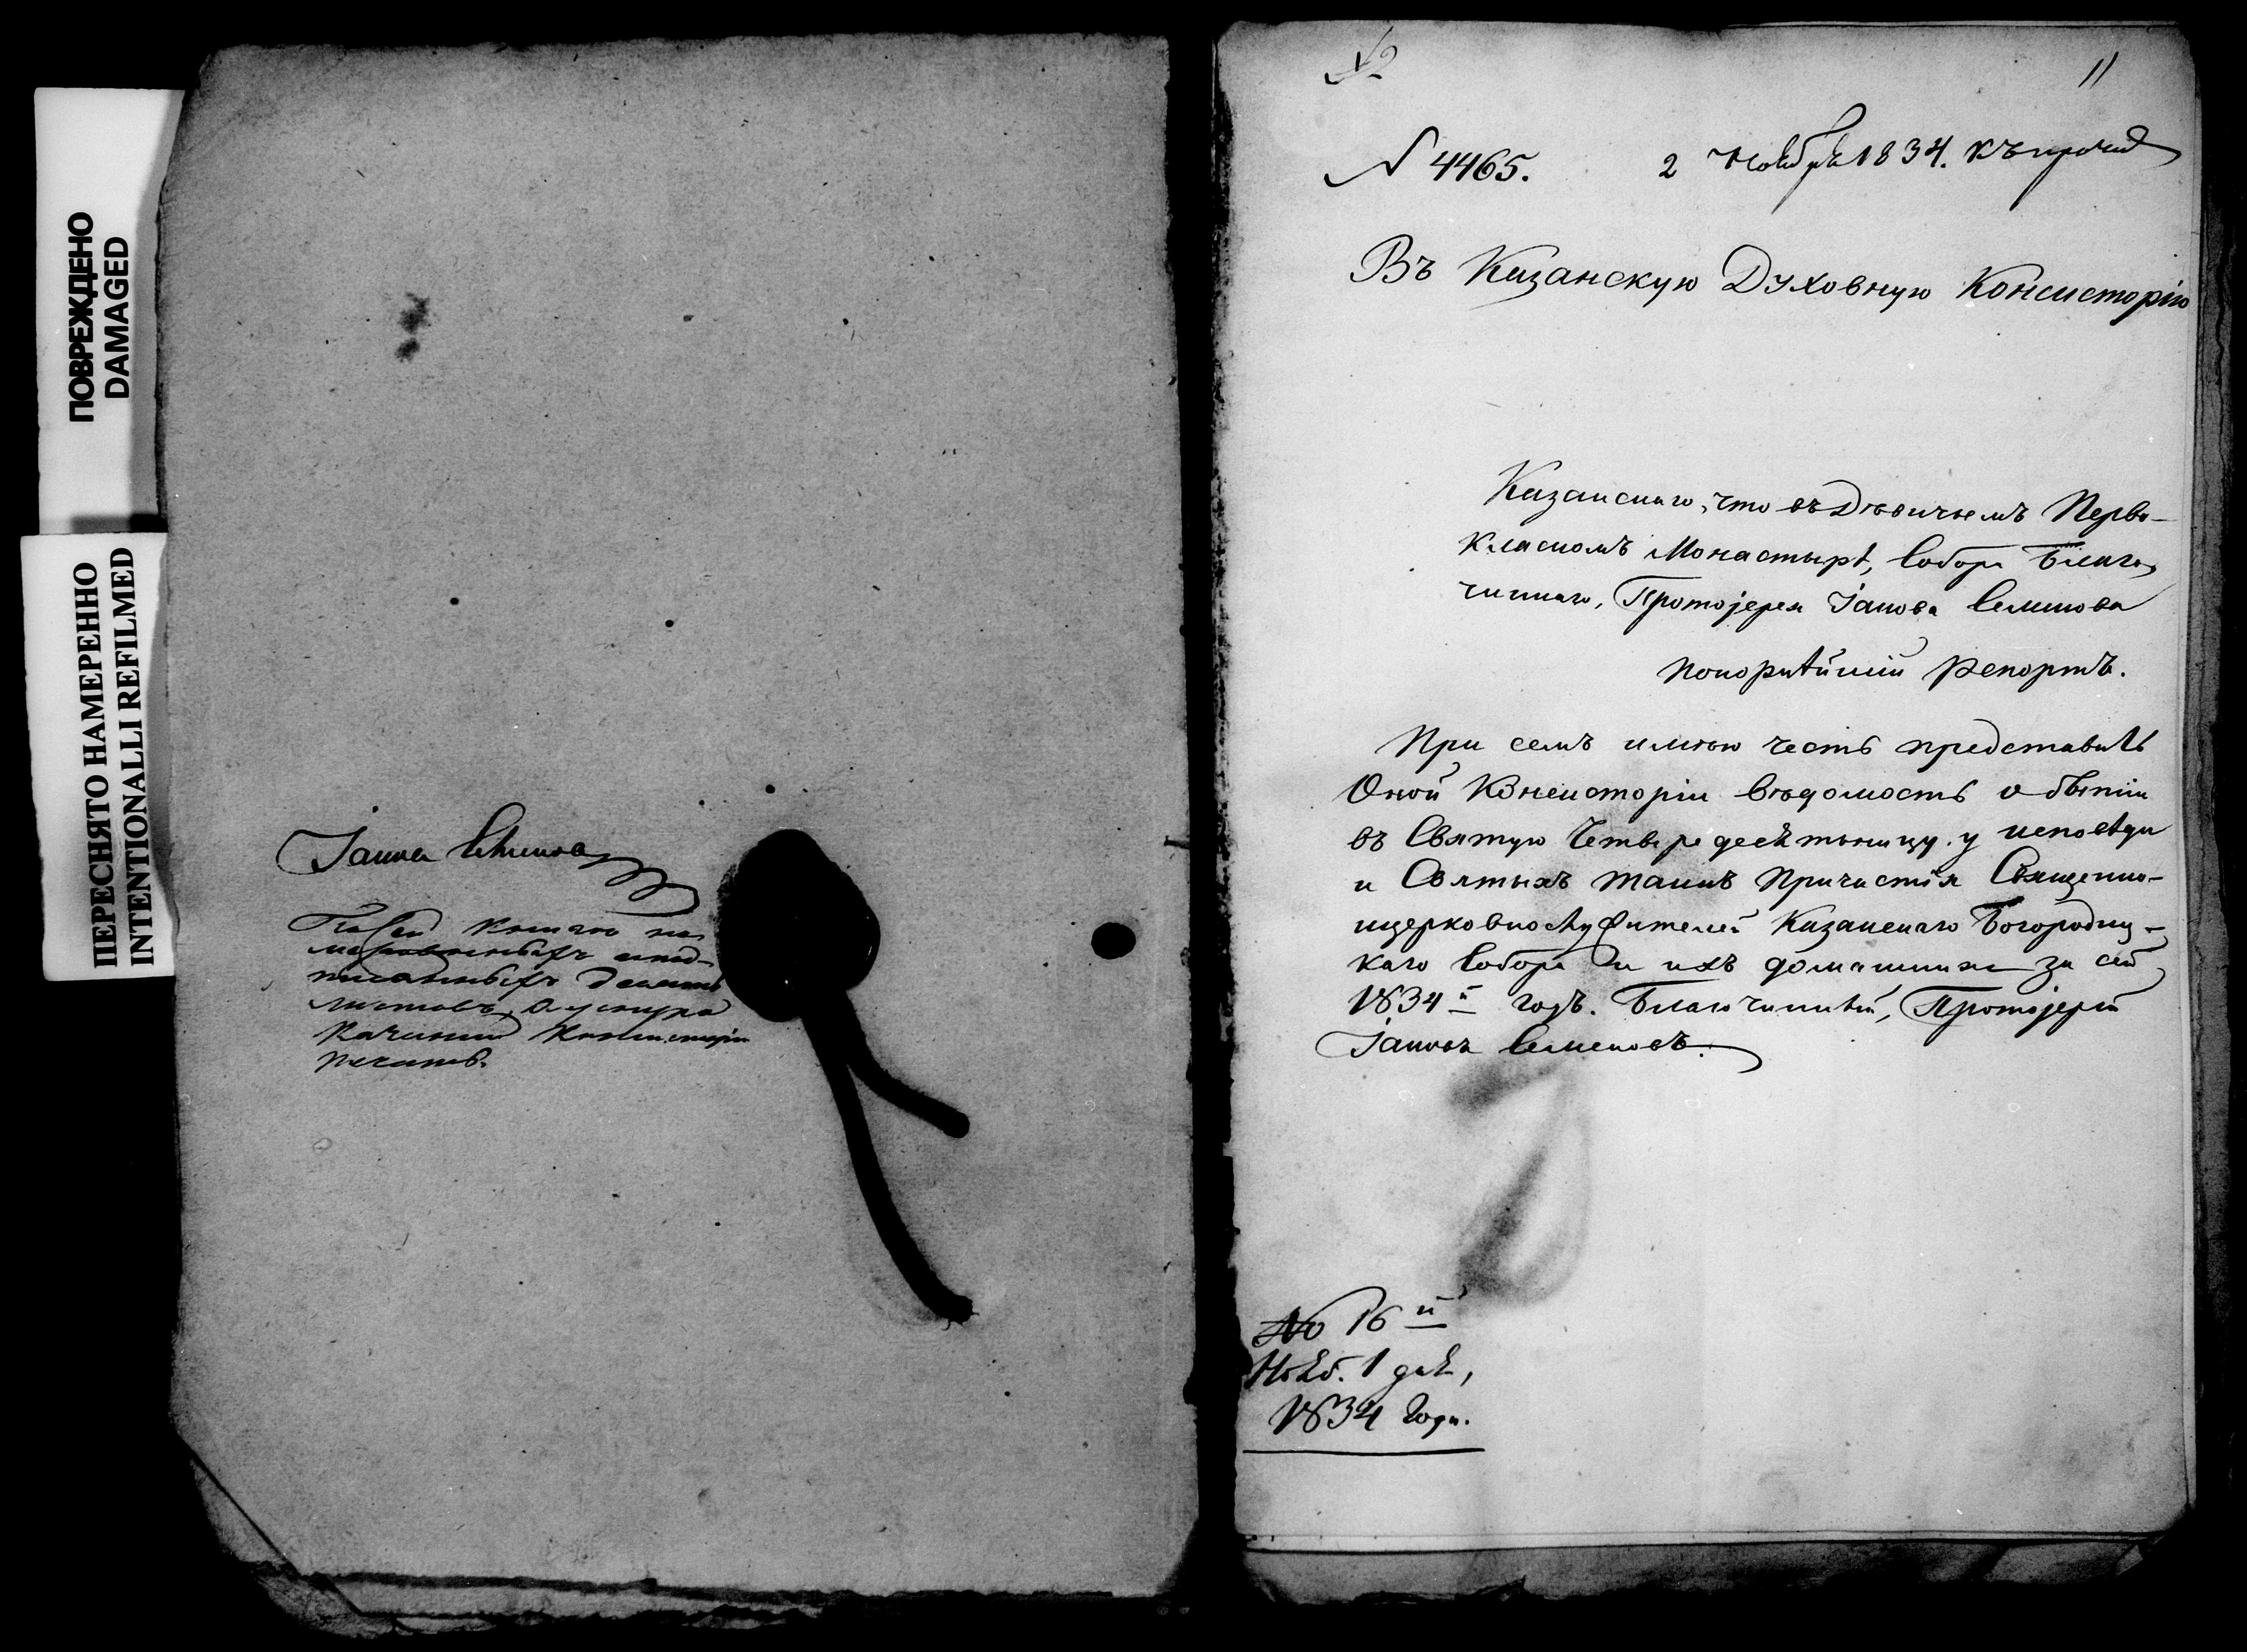 ПОВРЕЖДЕНО
DAMAGED
ПЕРЕСНЯТО НАМЕРЕННО
INTENTIONALLI REFILMED
листовъ
печать.
№
11
№ 4465.
2 Ноября 1834. къ
Въ Казанскую Духовную Консисторію
Казанскаго, что въ Дѣвичьемъ Перво-
класномъ Монастырѣ, Собора Благо
чиннаго, Протоіерея Іакова Семенова
покорнѣйшій Репортъ.
При семъ имѣю честь представить
Оной Консисторіи Вѣдомость о бытіи
въ Святую Четыредесятницу у исповѣди
и Святыхъ Таинъ Причастія Священно-
ицерковнослужителей Казанскаго Богородиц-
каго Собора и ихъ домашнихъ за сей
1834й годъ. Благочинный, Протоіерей
Іаковъ Семеновъ.
№ 16й
Нояб. 1 дня,
1834 Года.